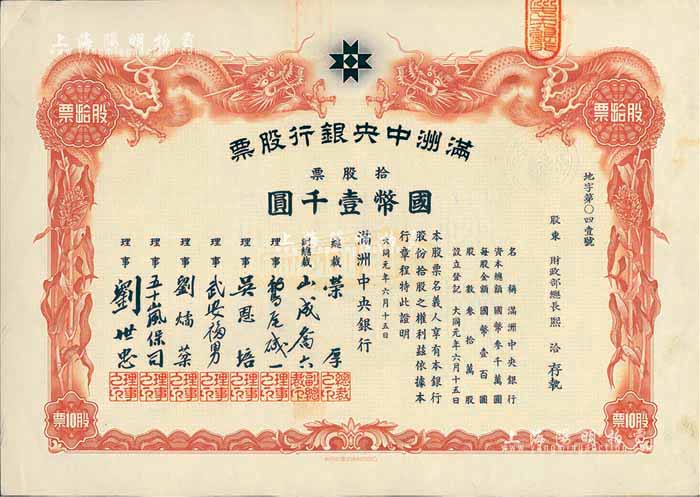 上海陽明拍賣
股拾票
股拾票
滿洲中央銀行股票
拾股票
國幣壹千圓
地字第〇四壹號
股東 財政部總長 熙洽 存執
名稱 滿洲中央銀行
資本總額 國幣參千萬圓
每股金額 國幣壹百圓
股數 參拾萬股
設立登記 大同元年六月十五日
本股票名義人享有本銀行
股份拾股之權利茲依據本
行章程特此證明
大同元年六月十五日
滿洲中央銀行
總裁 榮厚
副總裁 山成喬六
理事 鷲尾磯一
理事 吳恩培
理事 武安福男
理事 劉燏棻
理事 五十嵐保司
理事 劉世忠
總裁之印
副總裁之印
理事之印
理事之印
理事之印
理事之印
理事之印
理事之印
股10票
股10票
上海陽明拍賣